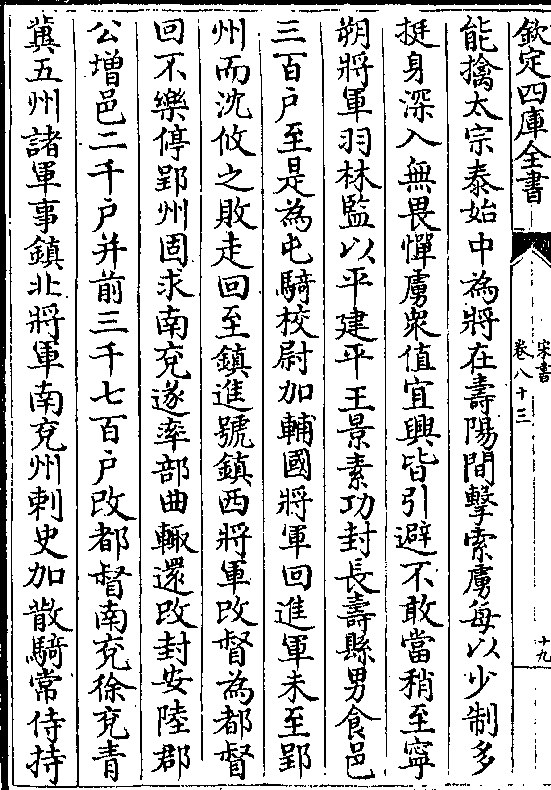 欽定四庫全書
宋書
卷八十三
十九
能擒太宗泰始中為將在壽陽間擊索虜每以少制多
挺身深入無畏憚虜衆值宜興皆引避不敢當稍至寧
朔將軍羽林監以平建平王景素功封長壽縣男食邑
三百户至是為屯騎校尉加輔國將軍回進軍未至郢
州而沈攸之敗走回至鎮進號鎮西將軍改督為都督
回不樂停郢州固求南兖遂率部曲輙還改封安陸郡
公增邑二千户并前三千七百户改都督南兖徐兖青
冀五州諸軍事鎮北將軍南兖州刺史加散騎常侍持